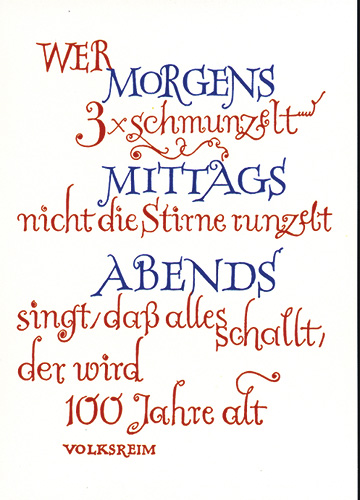 WER
MORGENS
3 x schmunzelt
MITTAGS
nicht die Stirne runzelt
ABENDS
singt, daß alles
schallt,
der wird
100 Jahre alt
VOLKSREIM